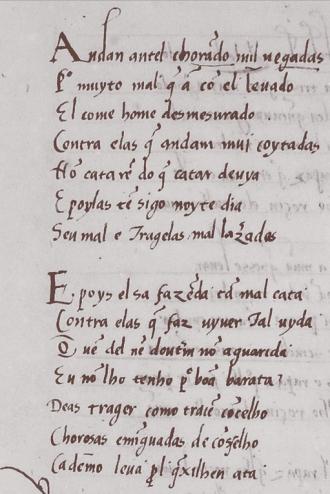 Andan antel chorādo mil vegadas
Po muyto mal q̄ ā cō el levado
El come home desmesurado
Contra elas q̄ andam mui coytadas
Nō cata rē do q̄ catar devya
E poylas tē sigo noyte dia
Seu mal e Tragelas mal lazadas
E poys el sa fazēda tā mal cata
Contra elas q̄ faz vyver Tal vyda
Que del nē doutrī nō aguarida
Eu nō lho tenho po boā barata
Deas trager como trage cōcelho
Chorosas e minguadas de cōselho
Ca demo leva prl q̄xilhen ata